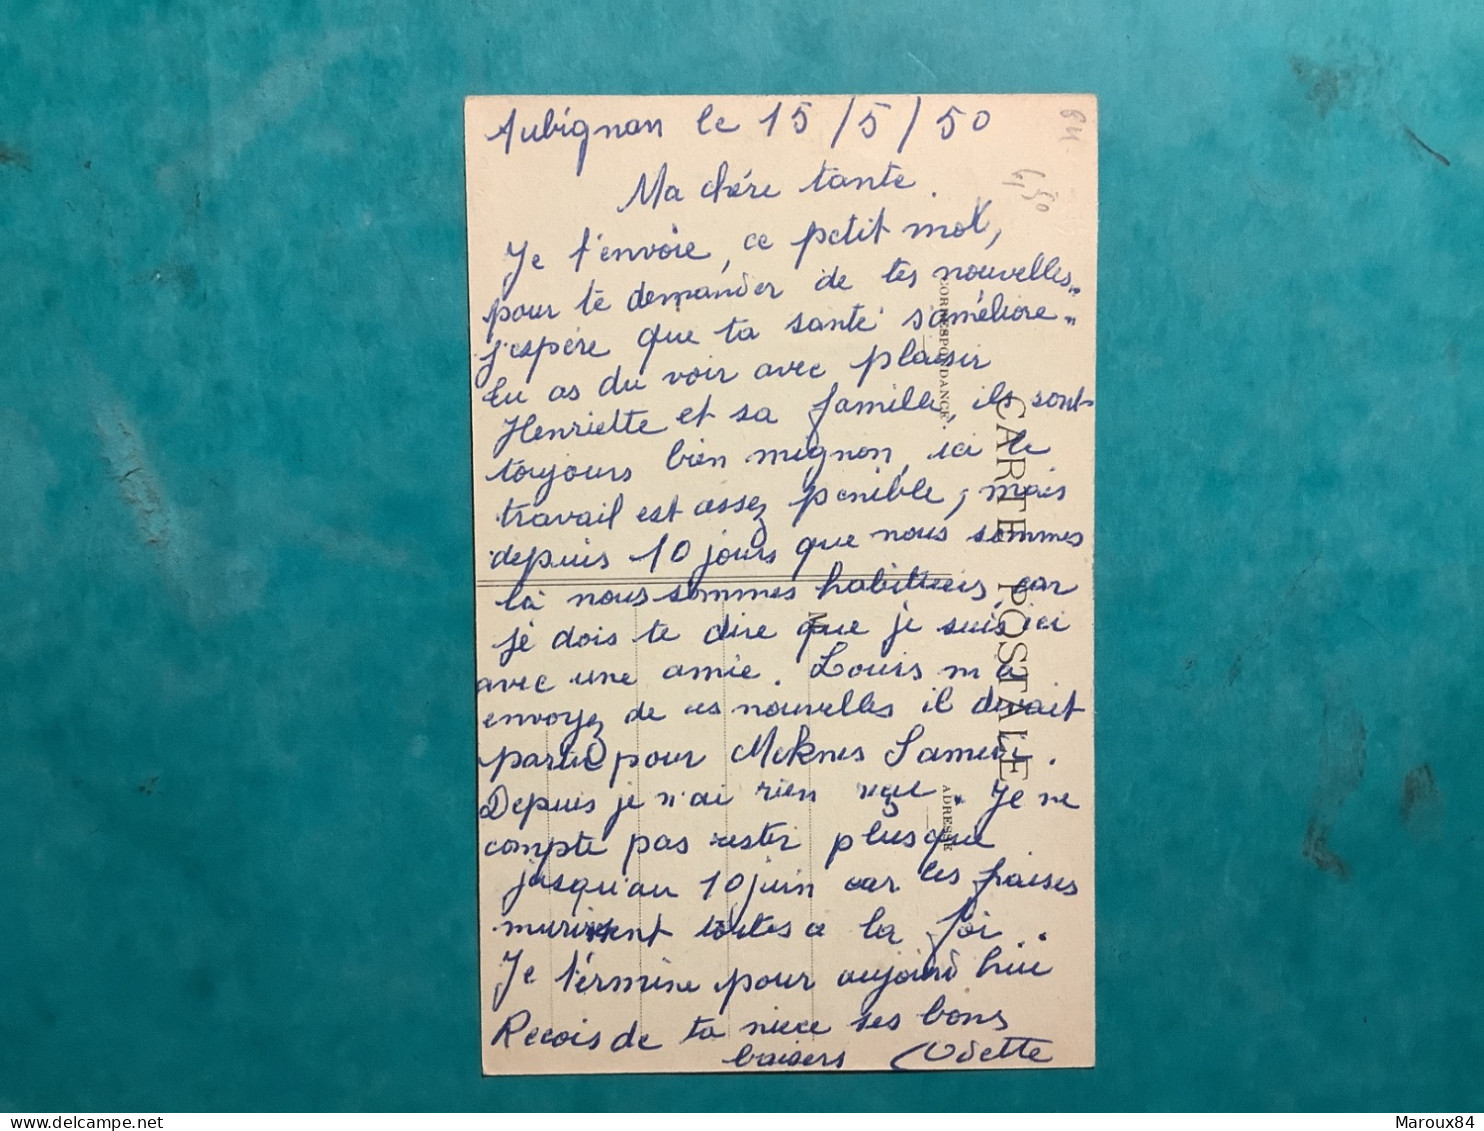 Aubignan le 15/5/50
Ma chére tante.
Je t'envoie, ce petit mot,
pour te demander de tes nouvelles.
j'espére que ta santé s'améliore.
tu as du voir avec plaisir
Henriette et sa famille, ils sont
toujours bien mignon, ici le
travail est assez penible, mais
depuis 10 jours que nous sommes
là nous sommes habituées, car
je dois te dire que je suis ici
avec une amie. Louis m'a
envoyez de ces nouvelles il devait
partir pour Meknes Samedi.
Depuis je n'ai rien reçue. Je ne
compte pas rester plus que
jusqu'au 10 juin car les fraises
murissent toutes a la foi.
Je términe pour aujourd'hui
Recois de ta niece ses bons
baisers Odette
CARTE POSTALE
CORRESPONDANCE
ADRESSE
M
84
delcampe.net
Maroux84